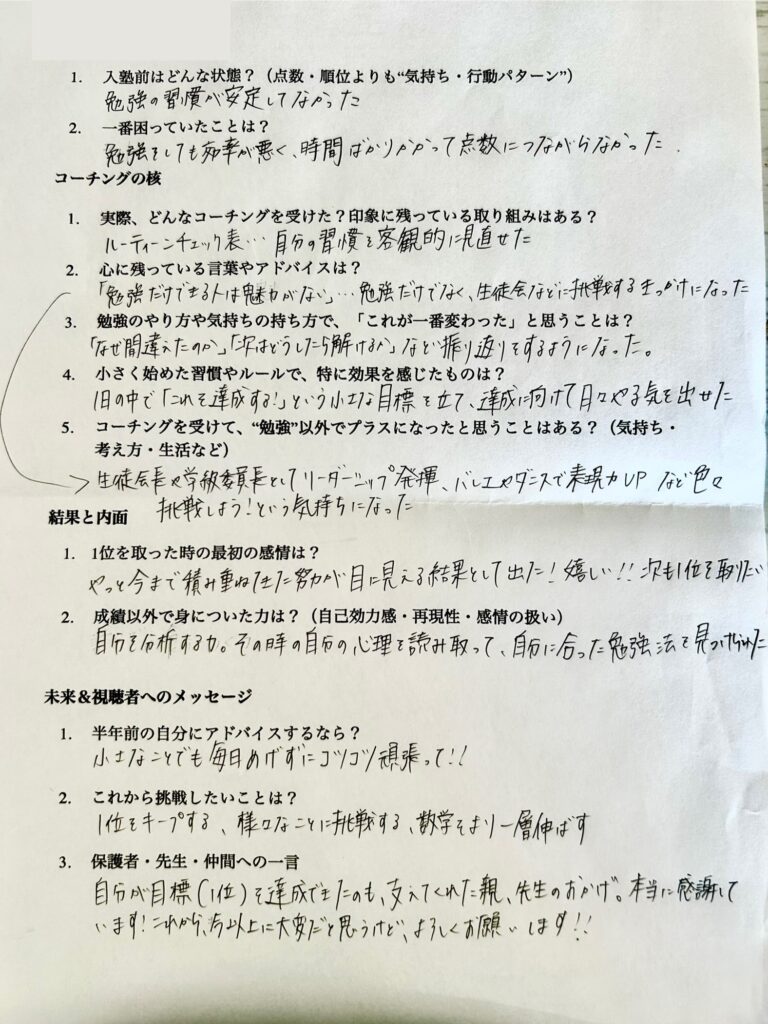 1. 入塾前はどんな状態？（点数・順位よりも“気持ち・行動パターン”）
勉強の習慣が安定してなかった
2. 一番困っていたことは？
勉強をしても効率が悪く、時間ばかりかかって点数につながらなかった.
コーチングの核
1. 実際、どんなコーチングを受けた？印象に残っている取り組みはある？
ルーティーンチェック表… 自分の習慣を客観的に見直せた
2. 心に残っている言葉やアドバイスは？
「勉強だけできる人は魅力がない」…勉強だけでなく、生徒会などに挑戦するきっかけになった
3. 勉強のやり方や気持ちの持ち方で、「これが一番変わった」と思うことは？
「なぜ間違えたのか」「次はどうしたら解けるか」など振り返りをするようになった。
4. 小さく始めた習慣やルールで、特に効果を感じたものは？
1日の中で「これを達成する!」という小さな目標を立て、達成に向けて日々やる気を出せた
5. コーチングを受けて、“勉強”以外でプラスになったと思うことはある？（気持ち・
考え方・生活など）
生徒会長や学級委員長としてリーダーシップ発揮、バレエやダンスで表現力UP など色々
挑戦しよう!という気持ちになった
結果と内面
1. 1位を取った時の最初の感情は？
やっと今まで積み重ねてきた努力が目に見える結果として出た! 嬉しい!! 次も1位を取りたい
2. 成績以外で身についた力は？（自己効力感・再現性・感情の扱い）
自分を分析する力。その時の自分の心理を読み取って、自分に合った勉強法を見つけられた
未来＆視聴者へのメッセージ
1. 半年前の自分にアドバイスするなら？
小さなことでも毎日めげずにコツコツ頑張って!!
2. これから挑戦したいことは？
1位をキープする、様々なことに挑戦する、数学をより一層伸ばす
3. 保護者・先生・仲間への一言
自分が目標(1位)を達成できたのも、支えてくれた親、先生のおかげ。本当に感謝して
います! これから、今以上に大変だと思うけど、よろしくお願いします!!